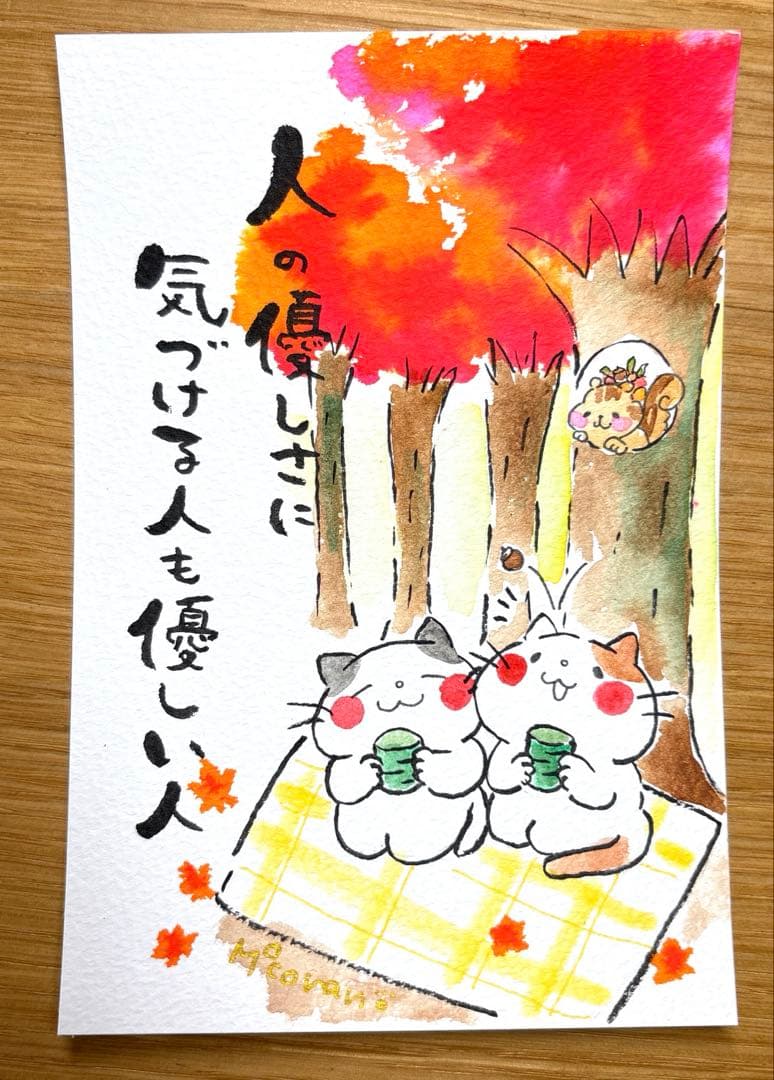 人の優しさに
気づける人も優しい人